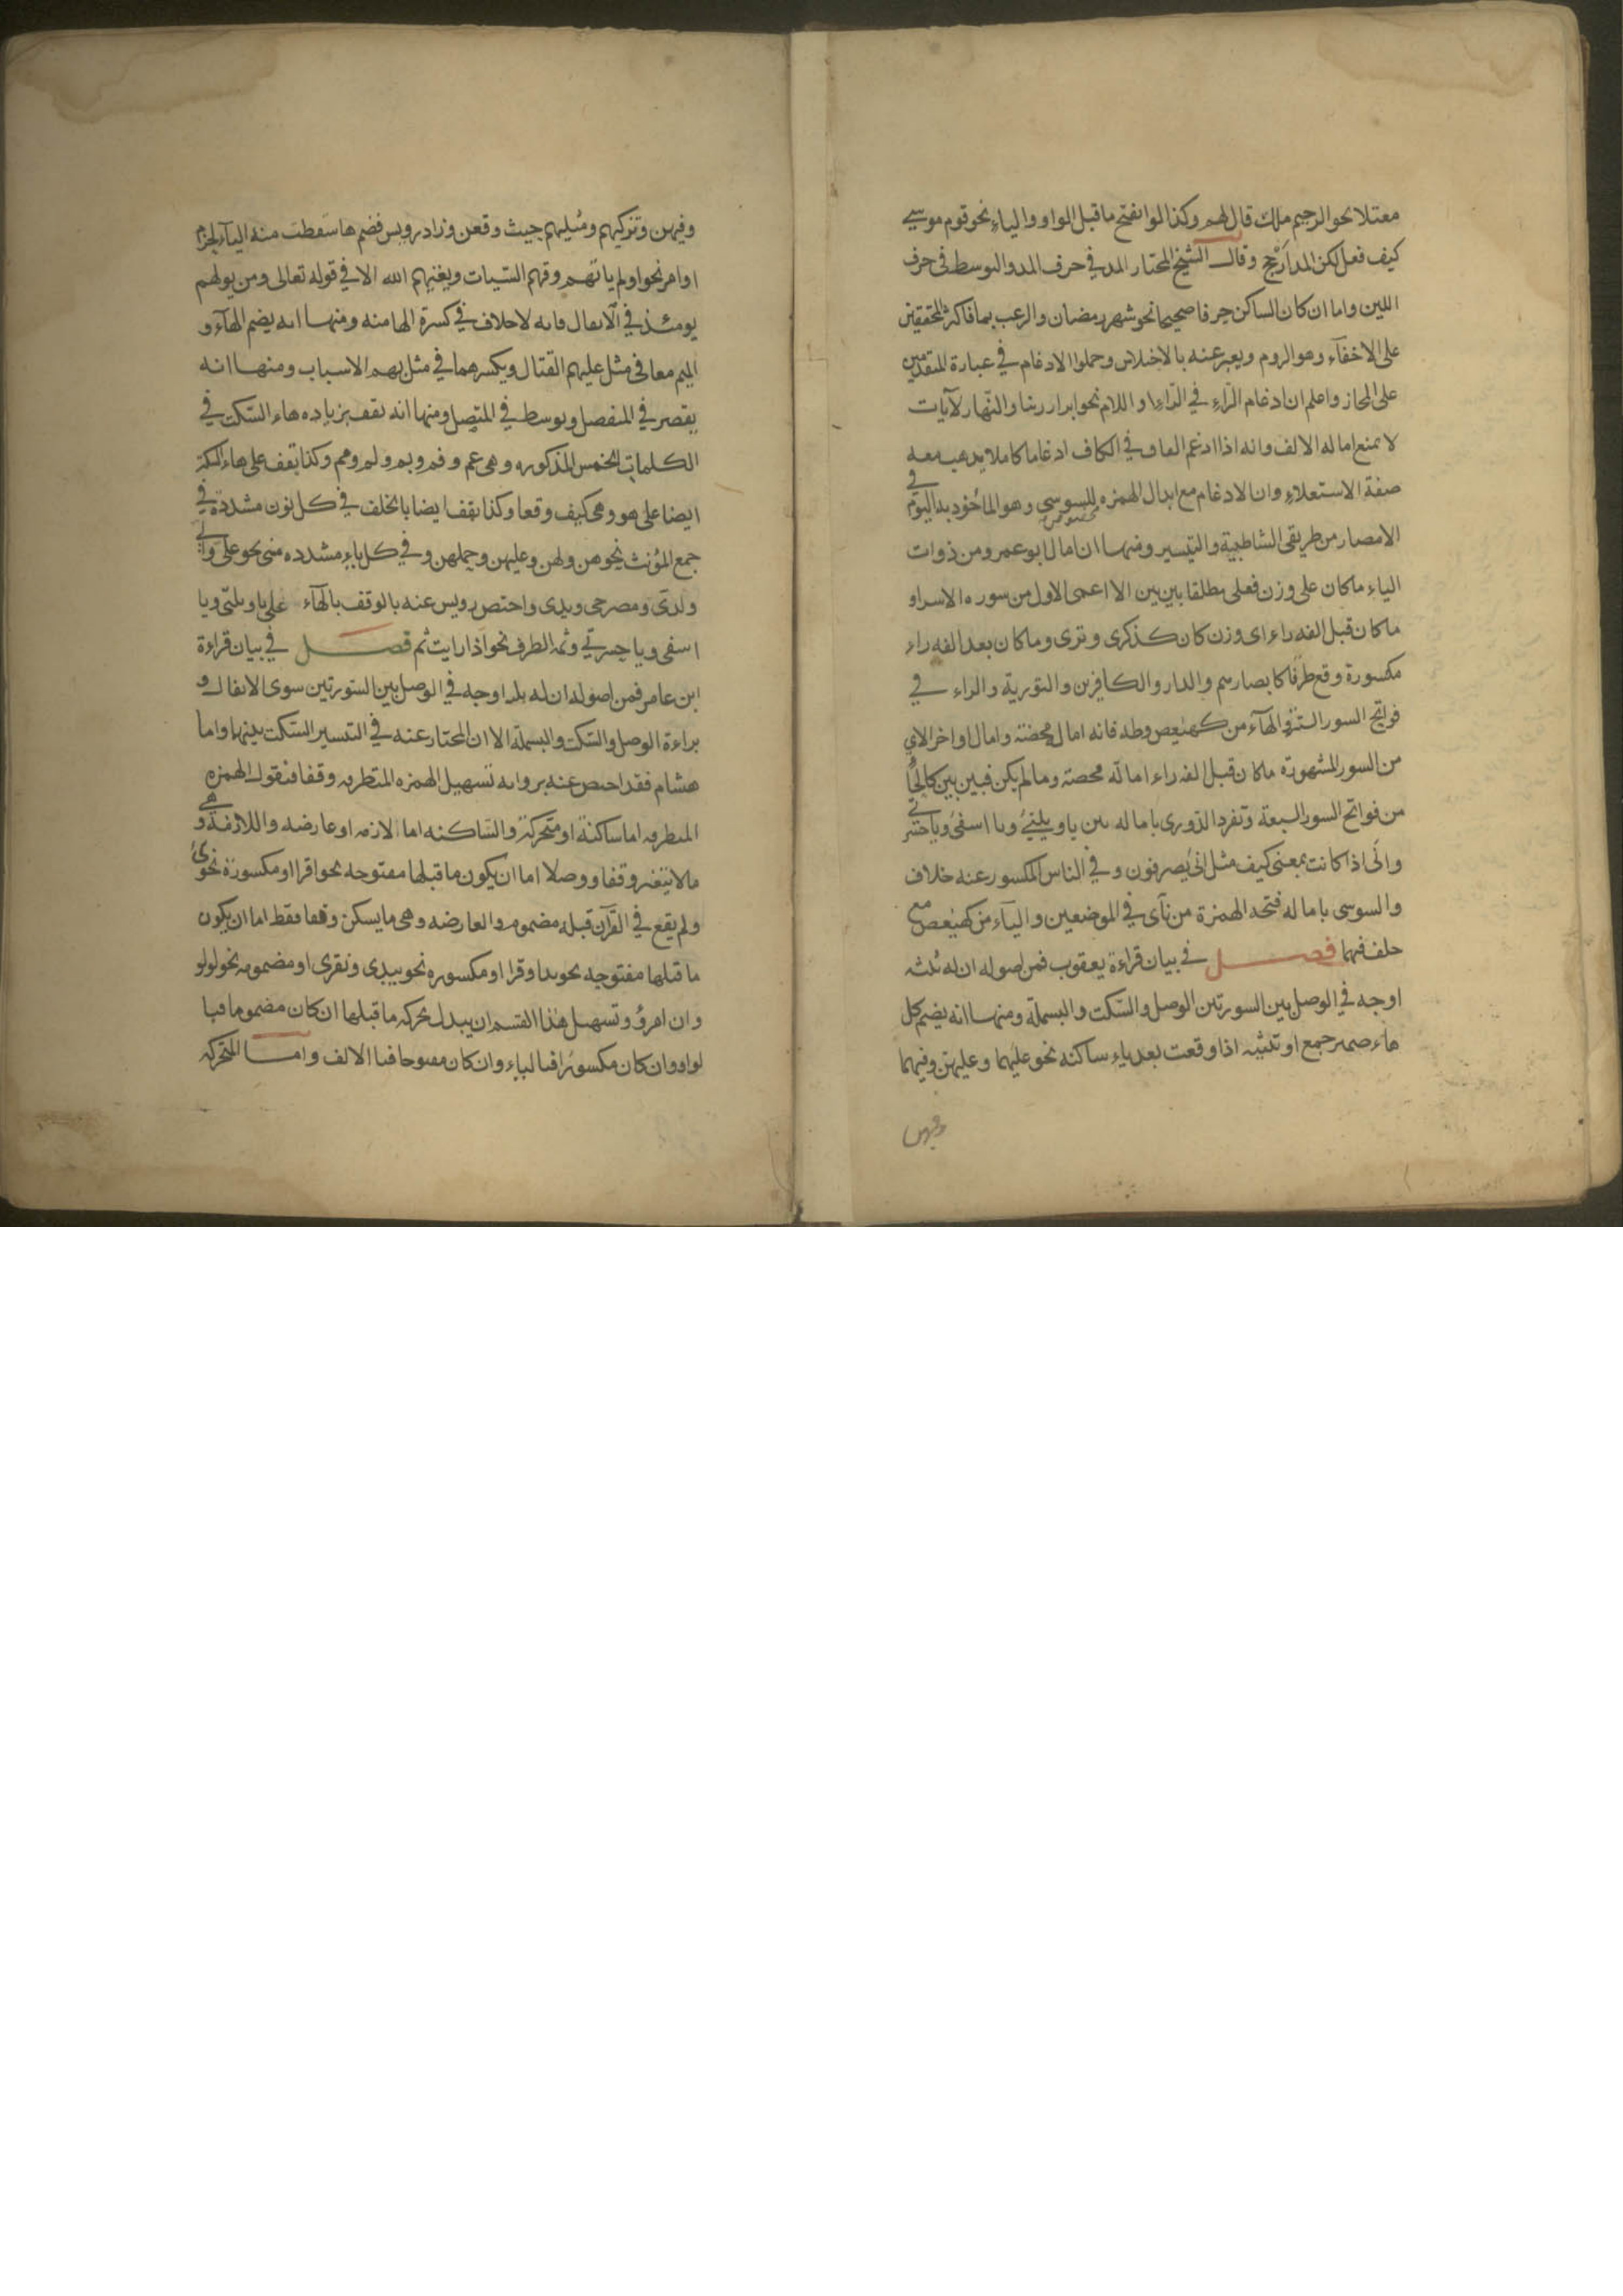 معتلا نحو الرحيم ملك قال لهم وكذا لو انفتح ما قبل الواو والياء نحو قوم موسى
كيف فعل لكن المد ارجح وقال الشيخ المختار المد في حرف المد والتوسط في حرف
اللين واما ان كان الساكن حرفا صحيحا نحو شهر رمضان والرعب بما فاكثر المحققين
على الاخفاء وهو الروم ويعبر عنه بالاختلاس وحملوا الادغام في عبارة المتقدمين
على المجاز واعلم ان ادغام الراء في الراء واللام نحو ابرار ربنا والنهار لآيات
لا يمنع اماله الالف وانه اذا ادغم القاف في الكاف ادغاما كاملا يذهب معه
صفة الاستعلاء وان الادغام مع ابدال الهمزه للسوسي وهو المأخوذ به اليوم في
الامصار من طريقي الشاطبية والتيسير ومنها ان امال ابو عمرو من ذوات
الياء ما كان على وزن فعلى مطلقا بين بين الا اعمى الاول من سوره الاسراو
ما كان قبل الفه راء اى وزن كان كذكرى وترى وما كان بعد الفه راء
مكسورة وقع طرفا كابصارهم والدار والكافرين والتوریة والراء في
فواتح السور الستة والهاء من كهيعص وطه فانه امال محضة وامال اواخر الاي
من السور المشهورة ما كان قبل الفه راء امالة محضة وما لم يكن فبين بين كالحا
من فواتح السور السبعة وتفرد الدورى باماله بين يا ويلتى ويا اسفى ويا حسرتى
وانى اذا كانت بمعنى كيف مثل انى يصرفون وفي الناس المكسور عنه خلاف
والسوسى باماله فتحه الهمزة من نآى في الموضعين والياء من كهيعص مع
خلف فيهما فصل في بيان قراءة يعقوب فمن اصوله ان له ثلثه
اوجه في الوصل بين السورتين الوصل والسكت والبسملة ومنها انه يضم كل
هاء ضمير جمع او تثنيه اذا وقعت بعد ياء ساكنه نحو عليهما وعليهن وفيهما
وفيهن
وفيهن وتزكيهم ومثليهم حيث وقعن وزاد رويس فضم ها سقطت منه الياء لجزم
اوامر نحو اولم ياتهم وقهم السيات ويغنيهم الله الا في قوله تعالى ومن يولهم
يومئذ في الانفال فانه لا خلاف في كسرة الها منه ومنها انه يضم الهاء و
الميم معا في مثل عليهم القتال ويكسرهما في مثل بهم الاسباب ومنها انه
يقصر في المنفصل ويوسط في المتصل ومنها انه يقف بزياده هاء السكت في
الكلمات الخمس المذكوره وهى عم وفم وبم ولم ومم وكذا يقف على هاء السكت
ايضا على هو وهى كيف وقعا وكذا يقف ايضا بالخلف في كل نون مشددة في
جمع المؤنث نحو هن ولهن وعليهن وحملهن وفي كل ياء مشدده مبنى نحو على والى
ولدى ومصرخى وبيدى واختص رويس عنه بالوقف بالهاء على يا ويلتى ويا
اسفى ويا حسرتى وثم الظرف نحو اذا رايت ثم فصل في بيان قراءة
ابن عامر فمن اصوله ان له ثلثه اوجه في الوصل بين السورتين سوى الانفال و
براءة الوصل والسكت والبسملة الا ان المختار عنه في التيسير السكت بينهما واما
هشام فقد اختص عنه بروايه تسهيل الهمزه المتطرفه وقفا فنقول الهمزه
المتطرفه اما ساكنة او متحركة والساكنه اما لازمه او عارضه واللازمة هي
ما لا يتغير وقفا ووصلا اما ان يكون ما قبلها مفتوحه نحو اقرا او مكسورة نحو
ولم يقع في القرآن قبله مضموم والعارضه وهى ما يسكن وقفا فقط اما ان يكون
ما قبلها مفتوحه نحو بدا وقرا او مكسوره نحو يبدى وقرى او مضمومه نحو لولو
وان امرؤ وتسهيل هذا القسم ان يبدل بحركه ما قبلها ان كان مضموما فبا
لواو وان كان مكسورا فبالياء وان كان مفتوحا فبالالف واما المتحركه